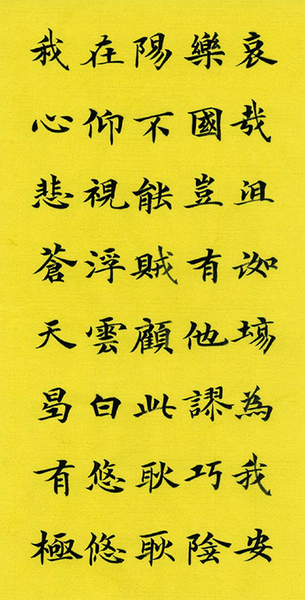 哀哉沮洳場為我安
樂國豈有他謬巧陰
陽不能賊顧此耿耿
在仰視浮雲白悠悠
我心悲蒼天曷有極